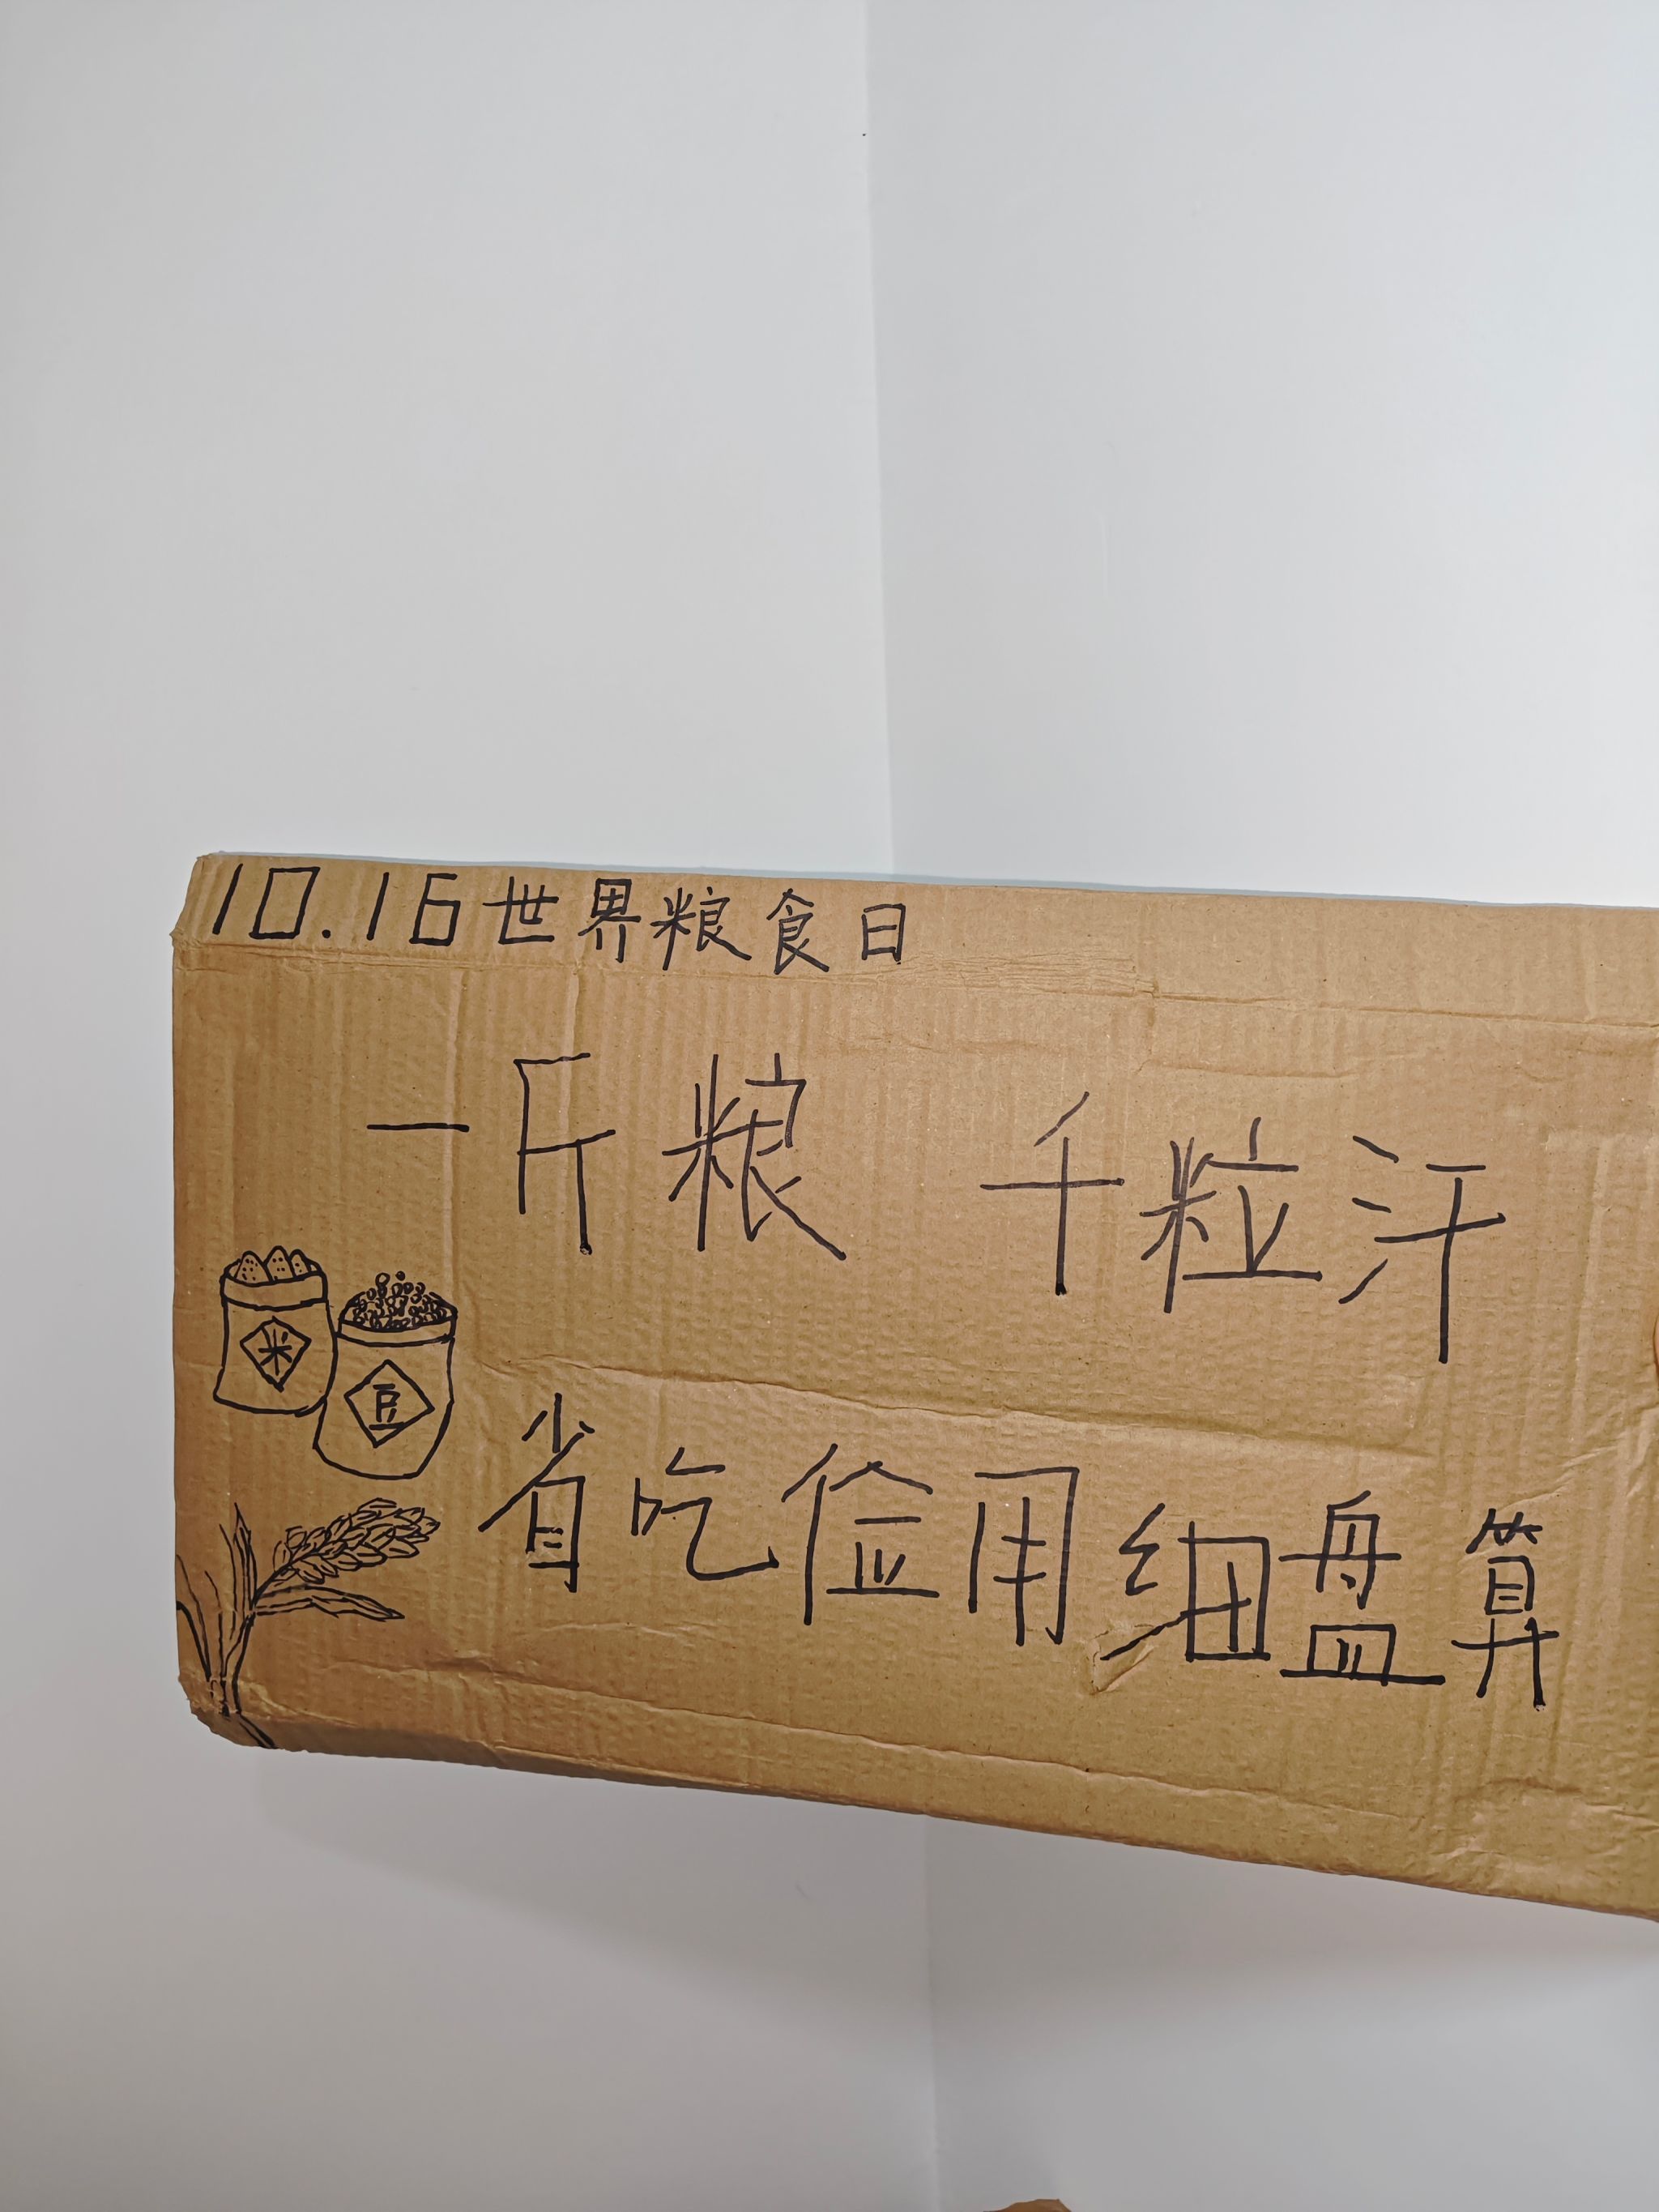 10.16世界粮食日
一斤粮 千粒汗
米
豆
省吃俭用细盘算